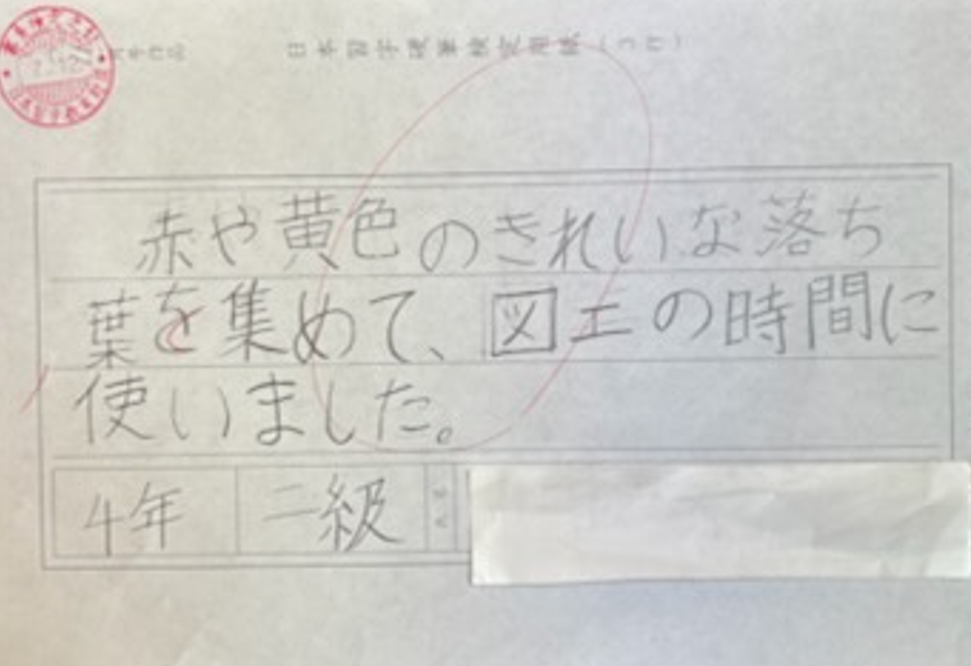 日本習字硬筆検定用紙
赤や黄色のきれいな落ち
葉を集めて、図工の時間に
使いました。
4年 二級